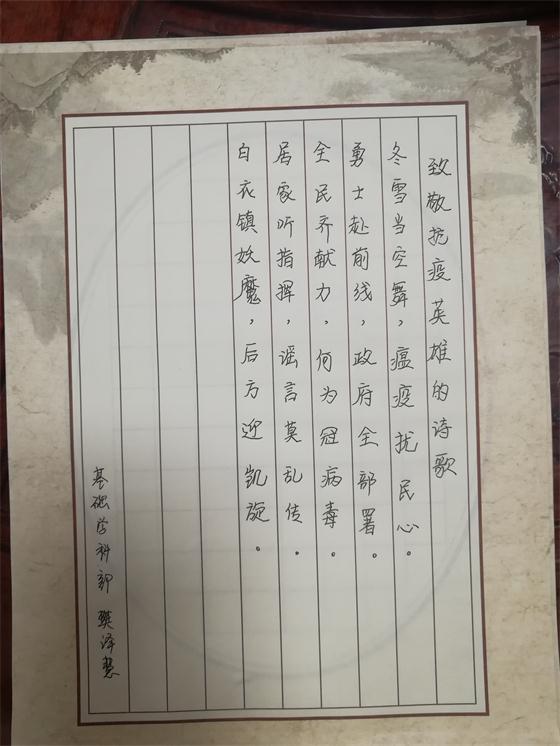 致敬抗疫英雄的诗歌
冬雪当空舞，瘟疫扰民心。
勇士赴前线，政府全部署。
全民齐献力，何为冠病毒。
居家听指挥，谣言莫乱传。
白衣镇妖魔，后方迎凯旋。
基础学科部 樊泽慧